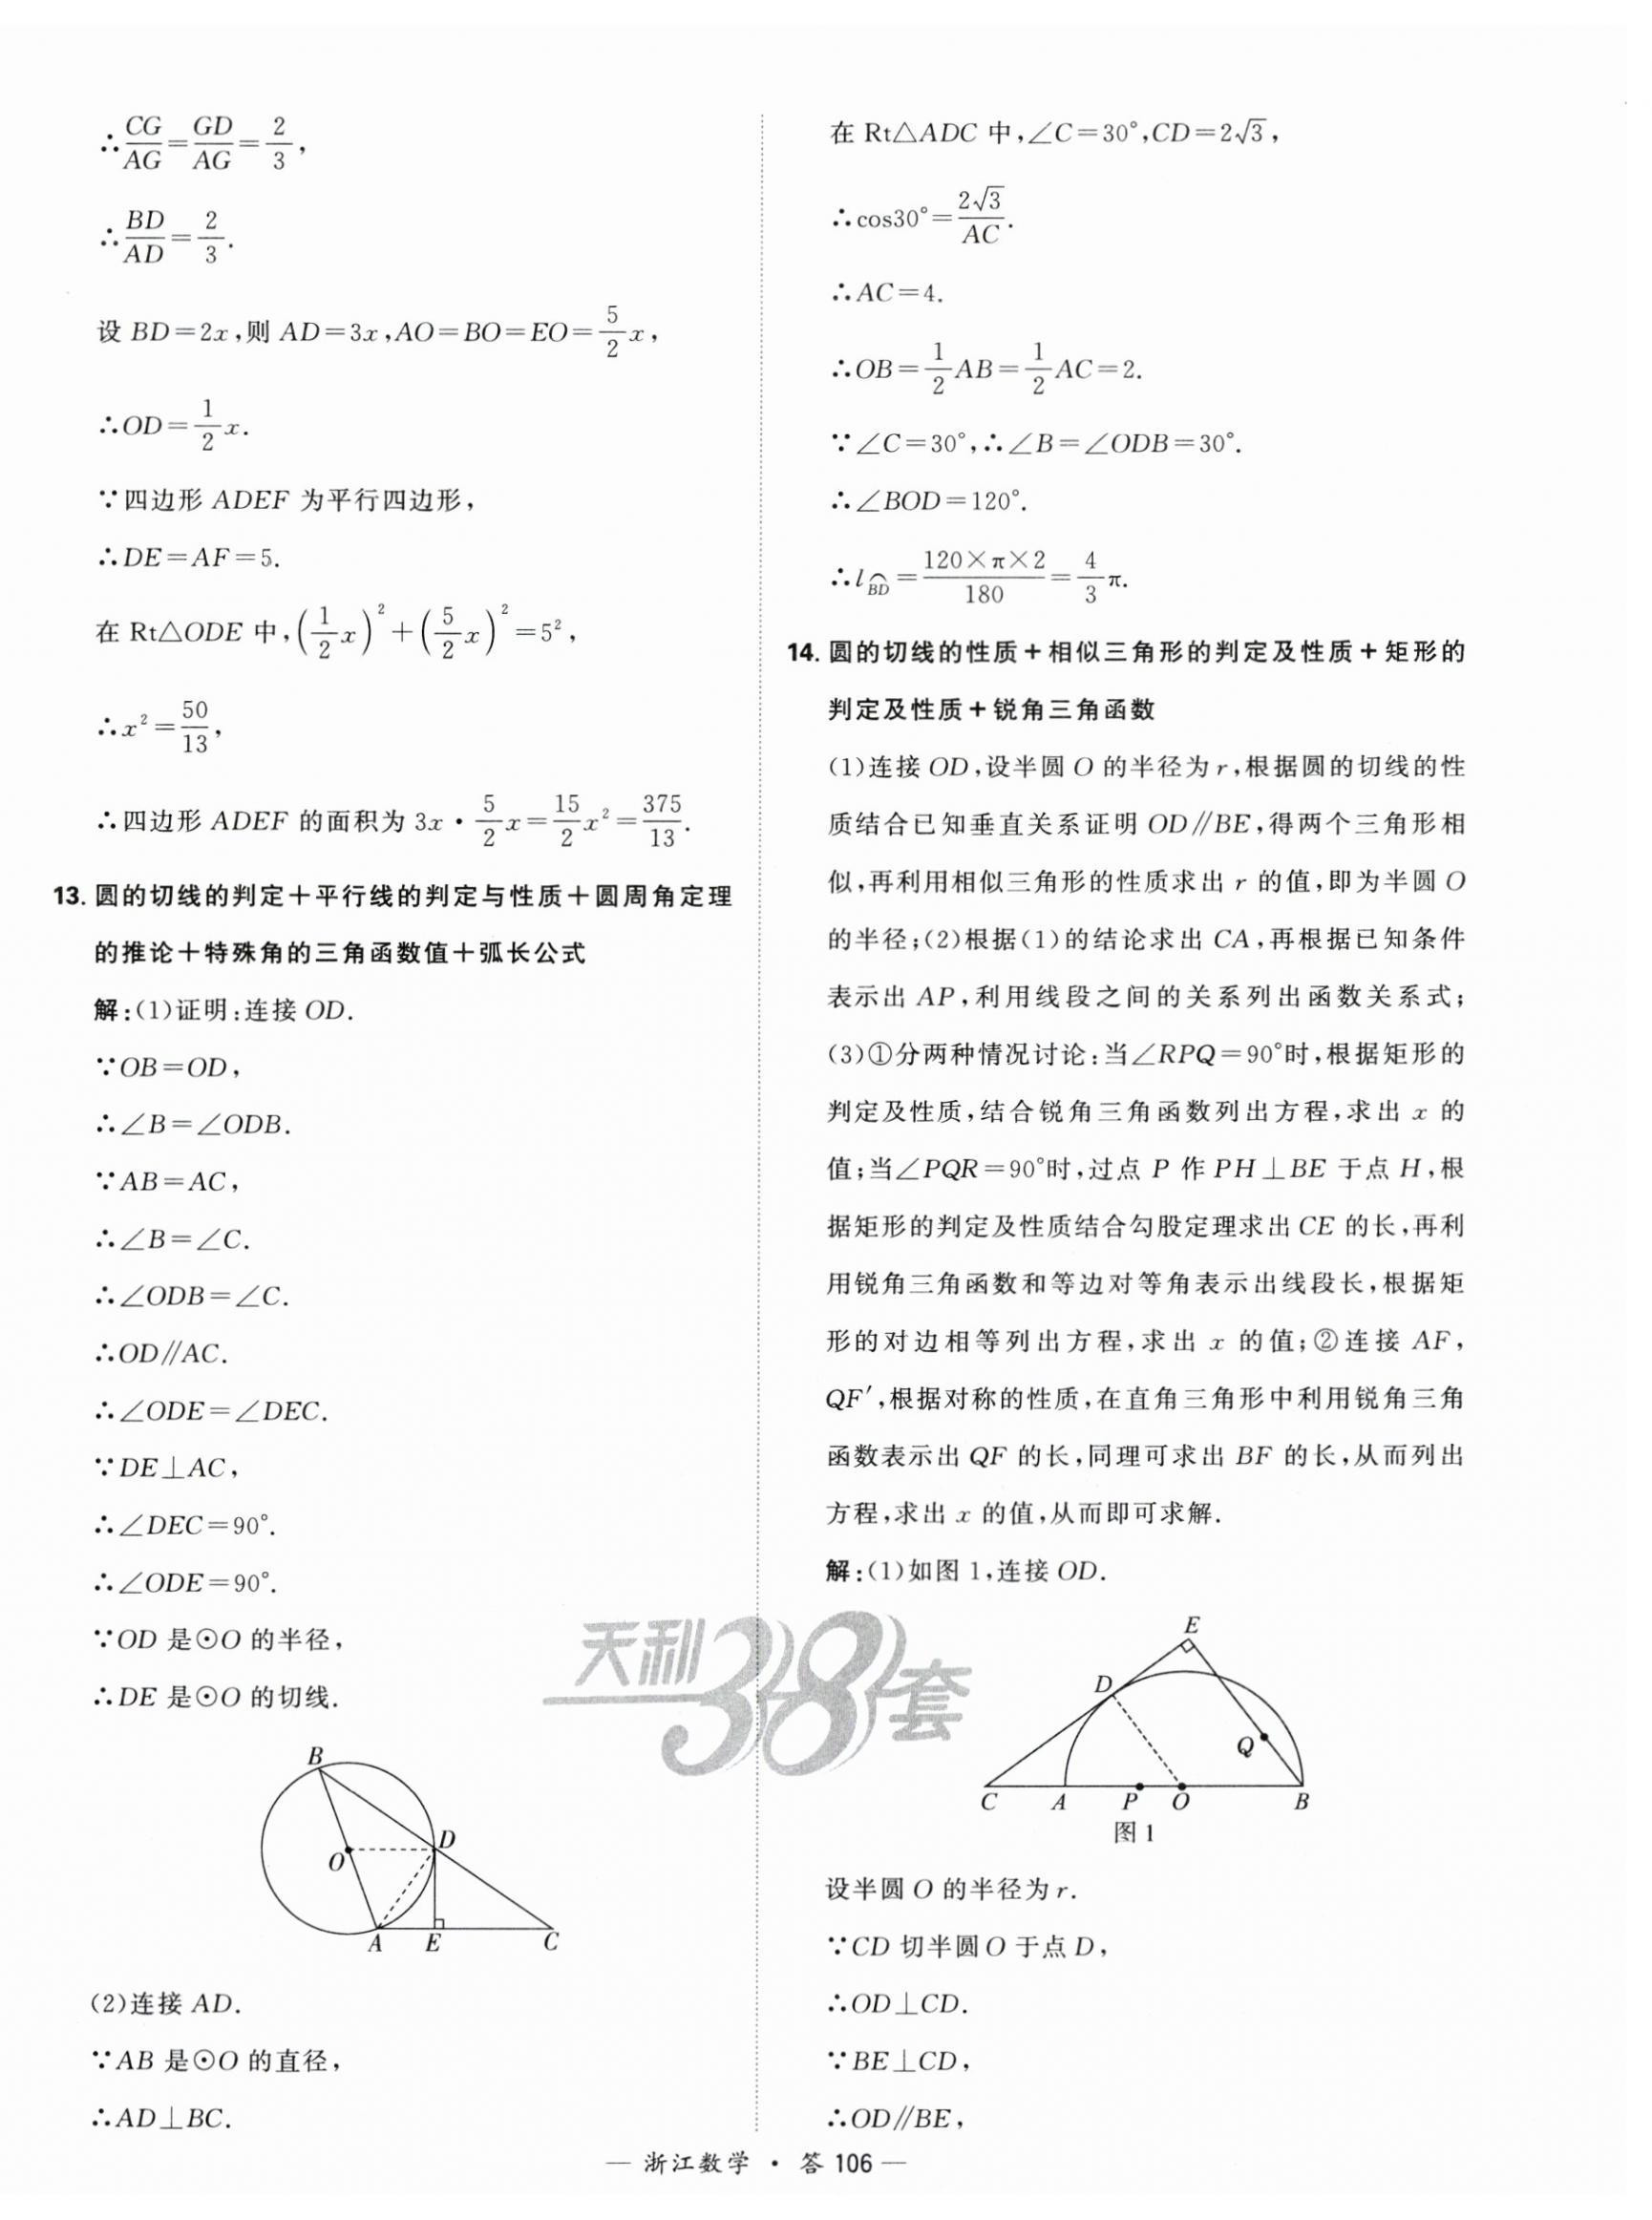 ∴CG/AG=GD/AG=2/3,
∴BD/AD=2/3.
设 BD=2x,则 AD=3x,AO=BO=EO=5/2x,
∴OD=1/2x.
∵四边形 ADEF 为平行四边形,
∴DE=AF=5.
在 Rt△ODE 中,(1/2x)²+(5/2x)²=5²,
∴x²=50/13,
∴四边形 ADEF 的面积为 3x·5/2x=15/2x²=375/13.
13. 圆的切线的判定+平行线的判定与性质+圆周角定理
的推论+特殊角的三角函数值+弧长公式
解:(1)证明:连接 OD.
∵OB=OD,
∴∠B=∠ODB.
∵AB=AC,
∴∠B=∠C.
∴∠ODB=∠C.
∴OD∥AC.
∴∠ODE=∠DEC.
∵DE⊥AC,
∴∠DEC=90°.
∴∠ODE=90°.
∵OD 是⊙O 的半径,
∴DE 是⊙O 的切线.
B
D
O
A E C
(2)连接 AD.
∵AB 是⊙O 的直径,
∴AD⊥BC.
在 Rt△ADC 中,∠C=30°,CD=2√3,
∴cos30°=2√3/AC.
∴AC=4.
∴OB=1/2AB=1/2AC=2.
∵∠C=30°,∴∠B=∠ODB=30°.
∴∠BOD=120°.
∴l⌒BD=120×π×2/180=4/3π.
14. 圆的切线的性质+相似三角形的判定及性质+矩形的
判定及性质+锐角三角函数
(1)连接 OD,设半圆 O 的半径为 r,根据圆的切线的性
质结合已知垂直关系证明 OD∥BE,得两个三角形相
似,再利用相似三角形的性质求出 r 的值,即为半圆 O
的半径;(2)根据(1)的结论求出 CA,再根据已知条件
表示出 AP,利用线段之间的关系列出函数关系式;
(3)①分两种情况讨论:当∠RPQ=90°时,根据矩形的
判定及性质,结合锐角三角函数列出方程,求出 x 的
值;当∠PQR=90°时,过点 P 作 PH⊥BE 于点 H,根
据矩形的判定及性质结合勾股定理求出 CE 的长,再利
用锐角三角函数和等边对等角表示出线段长,根据矩
形的对边相等列出方程,求出 x 的值;②连接 AF,
QF′,根据对称的性质,在直角三角形中利用锐角三角
函数表示出 QF 的长,同理可求出 BF 的长,从而列出
方程,求出 x 的值,从而即可求解.
解:(1)如图 1,连接 OD.
E
D
Q
C A P O B
图 1
设半圆 O 的半径为 r.
∵CD 切半圆 O 于点 D,
∴OD⊥CD.
∵BE⊥CD,
∴OD∥BE,
天利38套
— 浙江数学 · 答 106 —